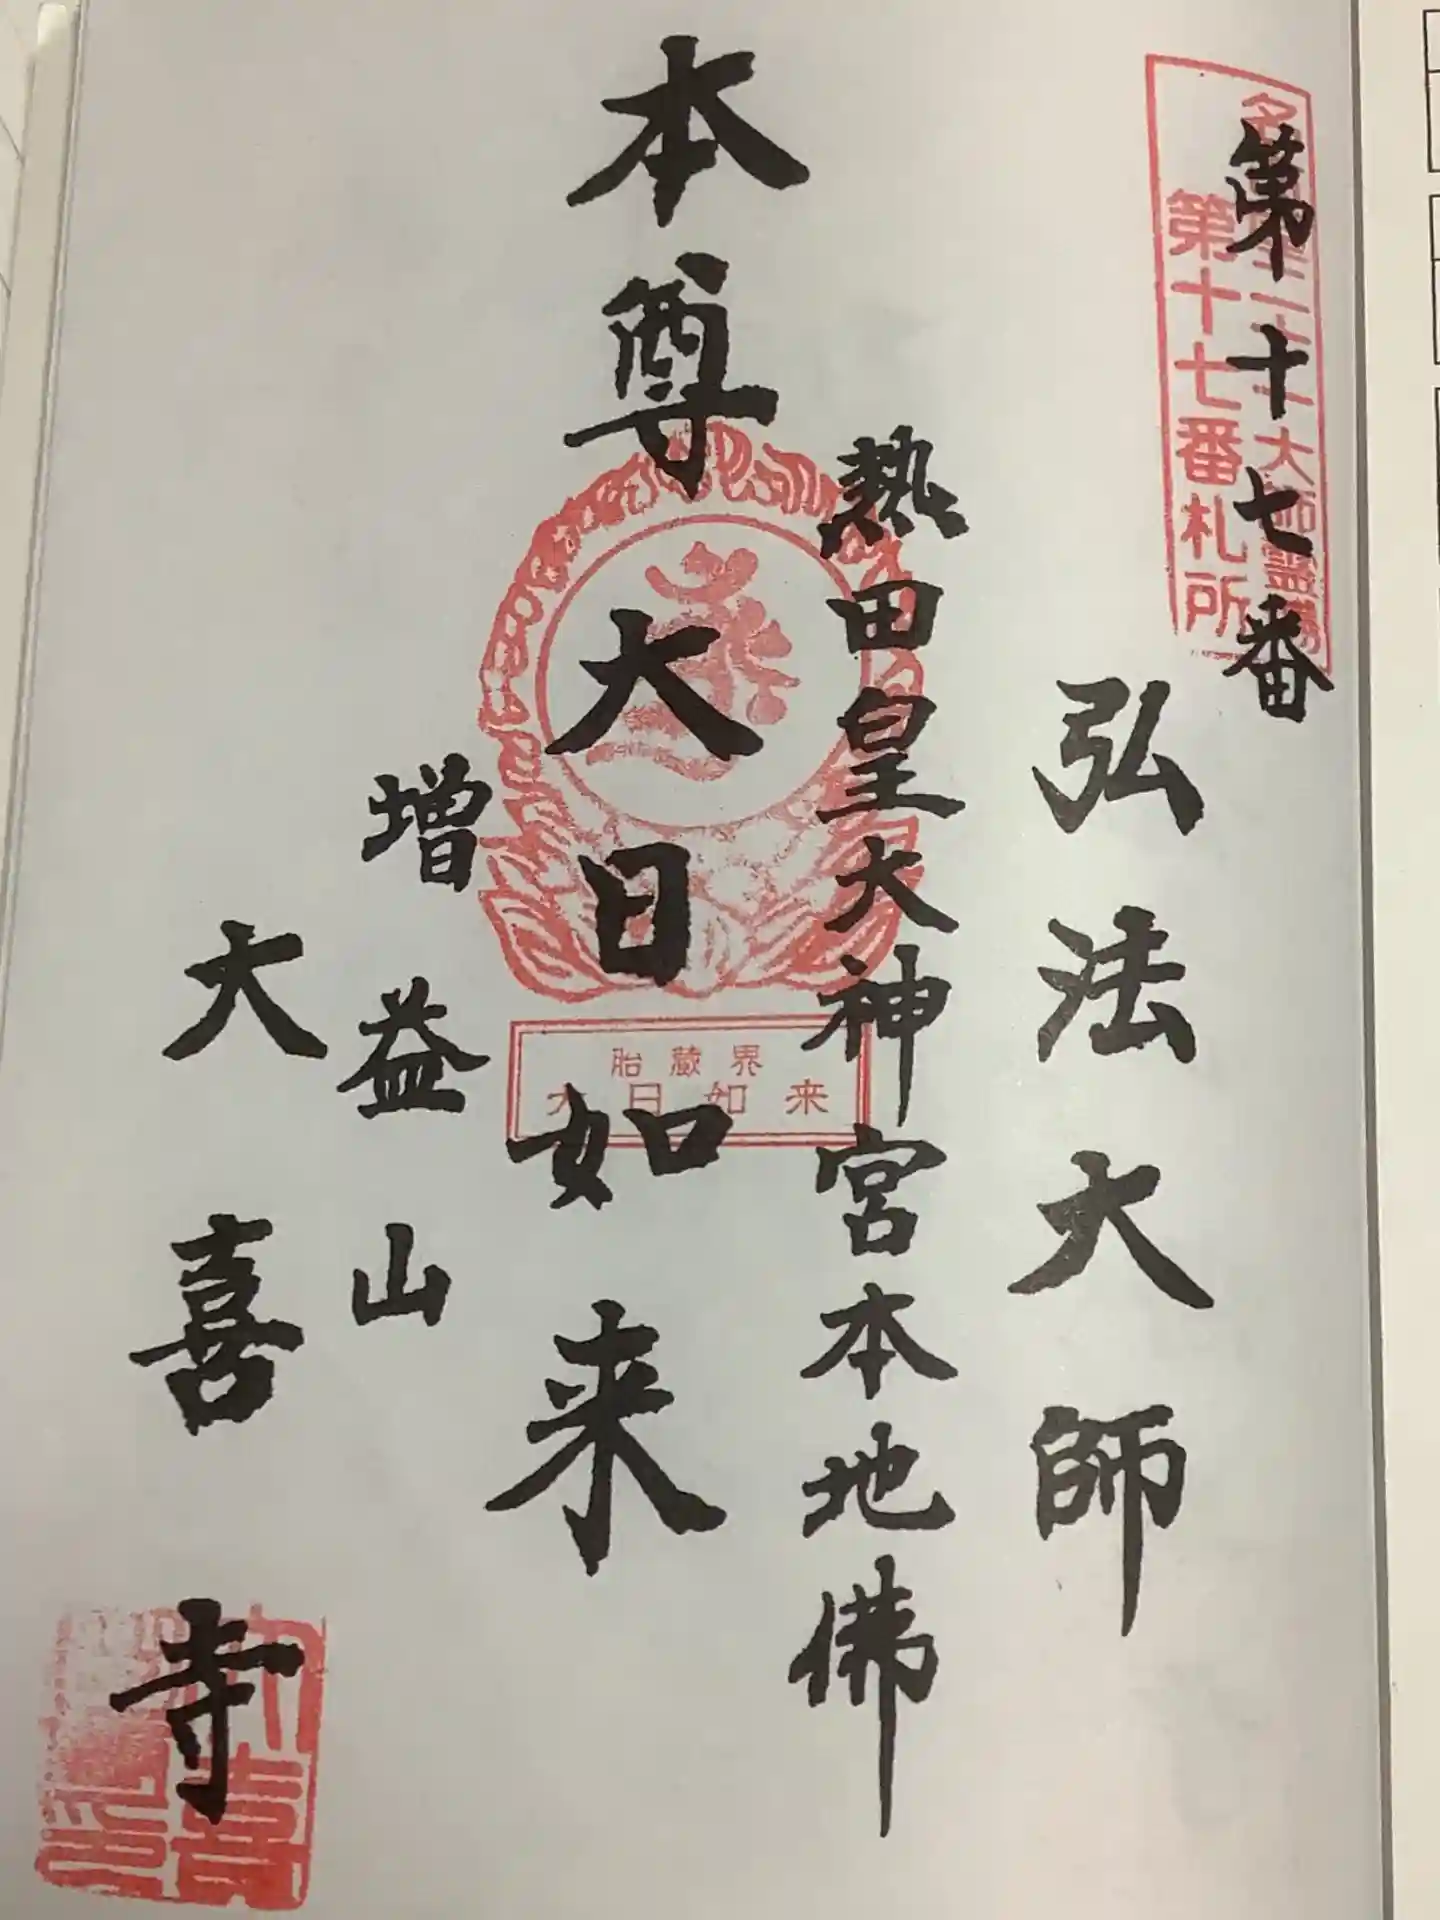 第十七番
第十七番札所
弘法大師
熱田皇大神宮本地佛
本尊大日如来
胎蔵界
大日如来
増益山
大喜寺